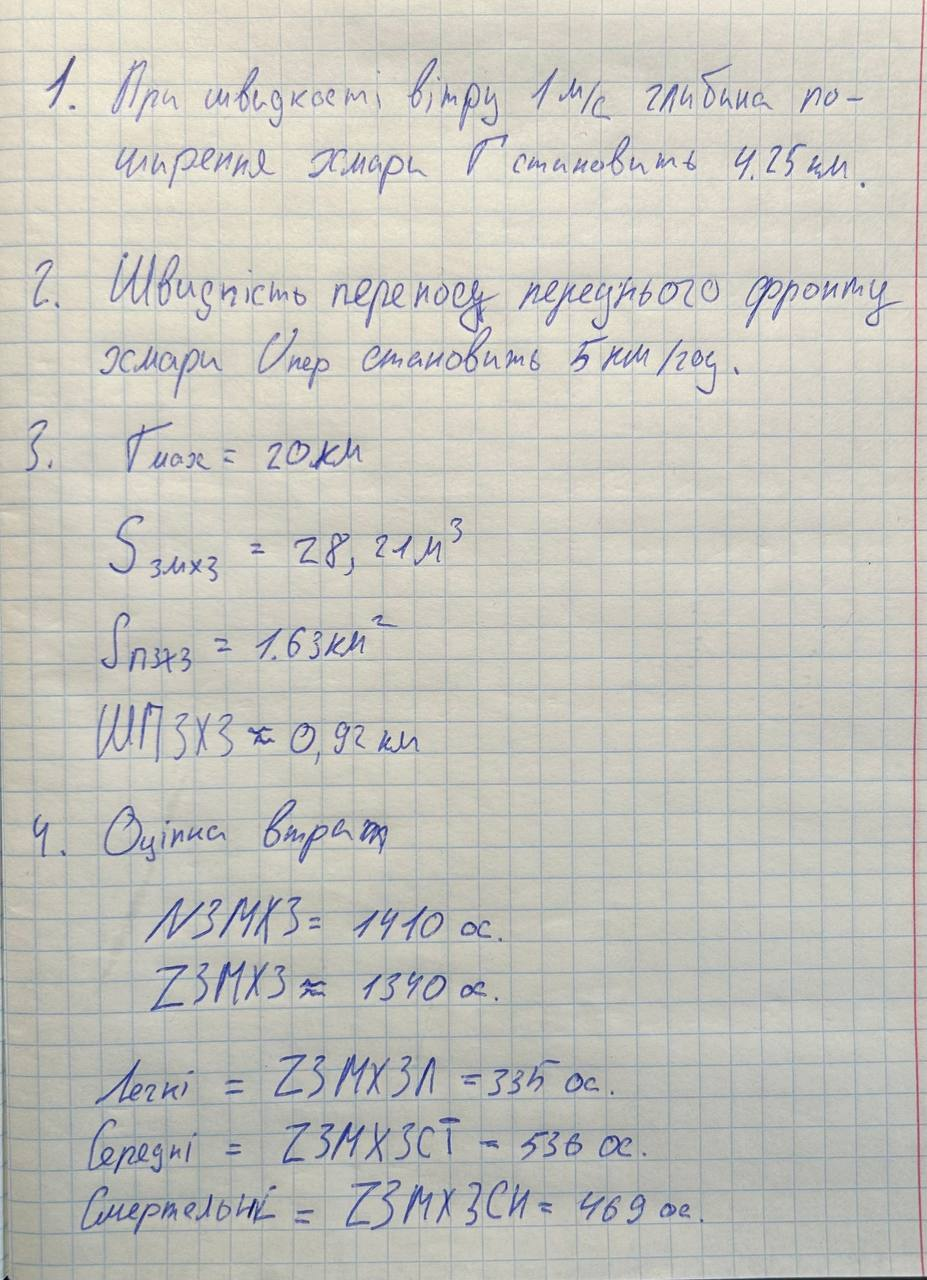 1. При швидкості вітру 1 м/с глибина по-
ширення хмари Г становить 4.25 км.
2. Швидкість переносу переднього фронту
хмари Vпер становить 5 км/год.
3. Гmax = 20 км
Sзмхз = 28,21 м³
Sпзхз = 1.63 км²
ШПЗХЗ ≈ 0,92 км
4. Оцінка втрат
NЗМХЗ = 1410 ос.
ZЗМХЗ ≈ 1340 ос.
Легкі = ZЗМХЗЛ = 335 ос.
Середні = ZЗМХЗСТ = 536 ос.
Смертельні = ZЗМХЗСН = 469 ос.